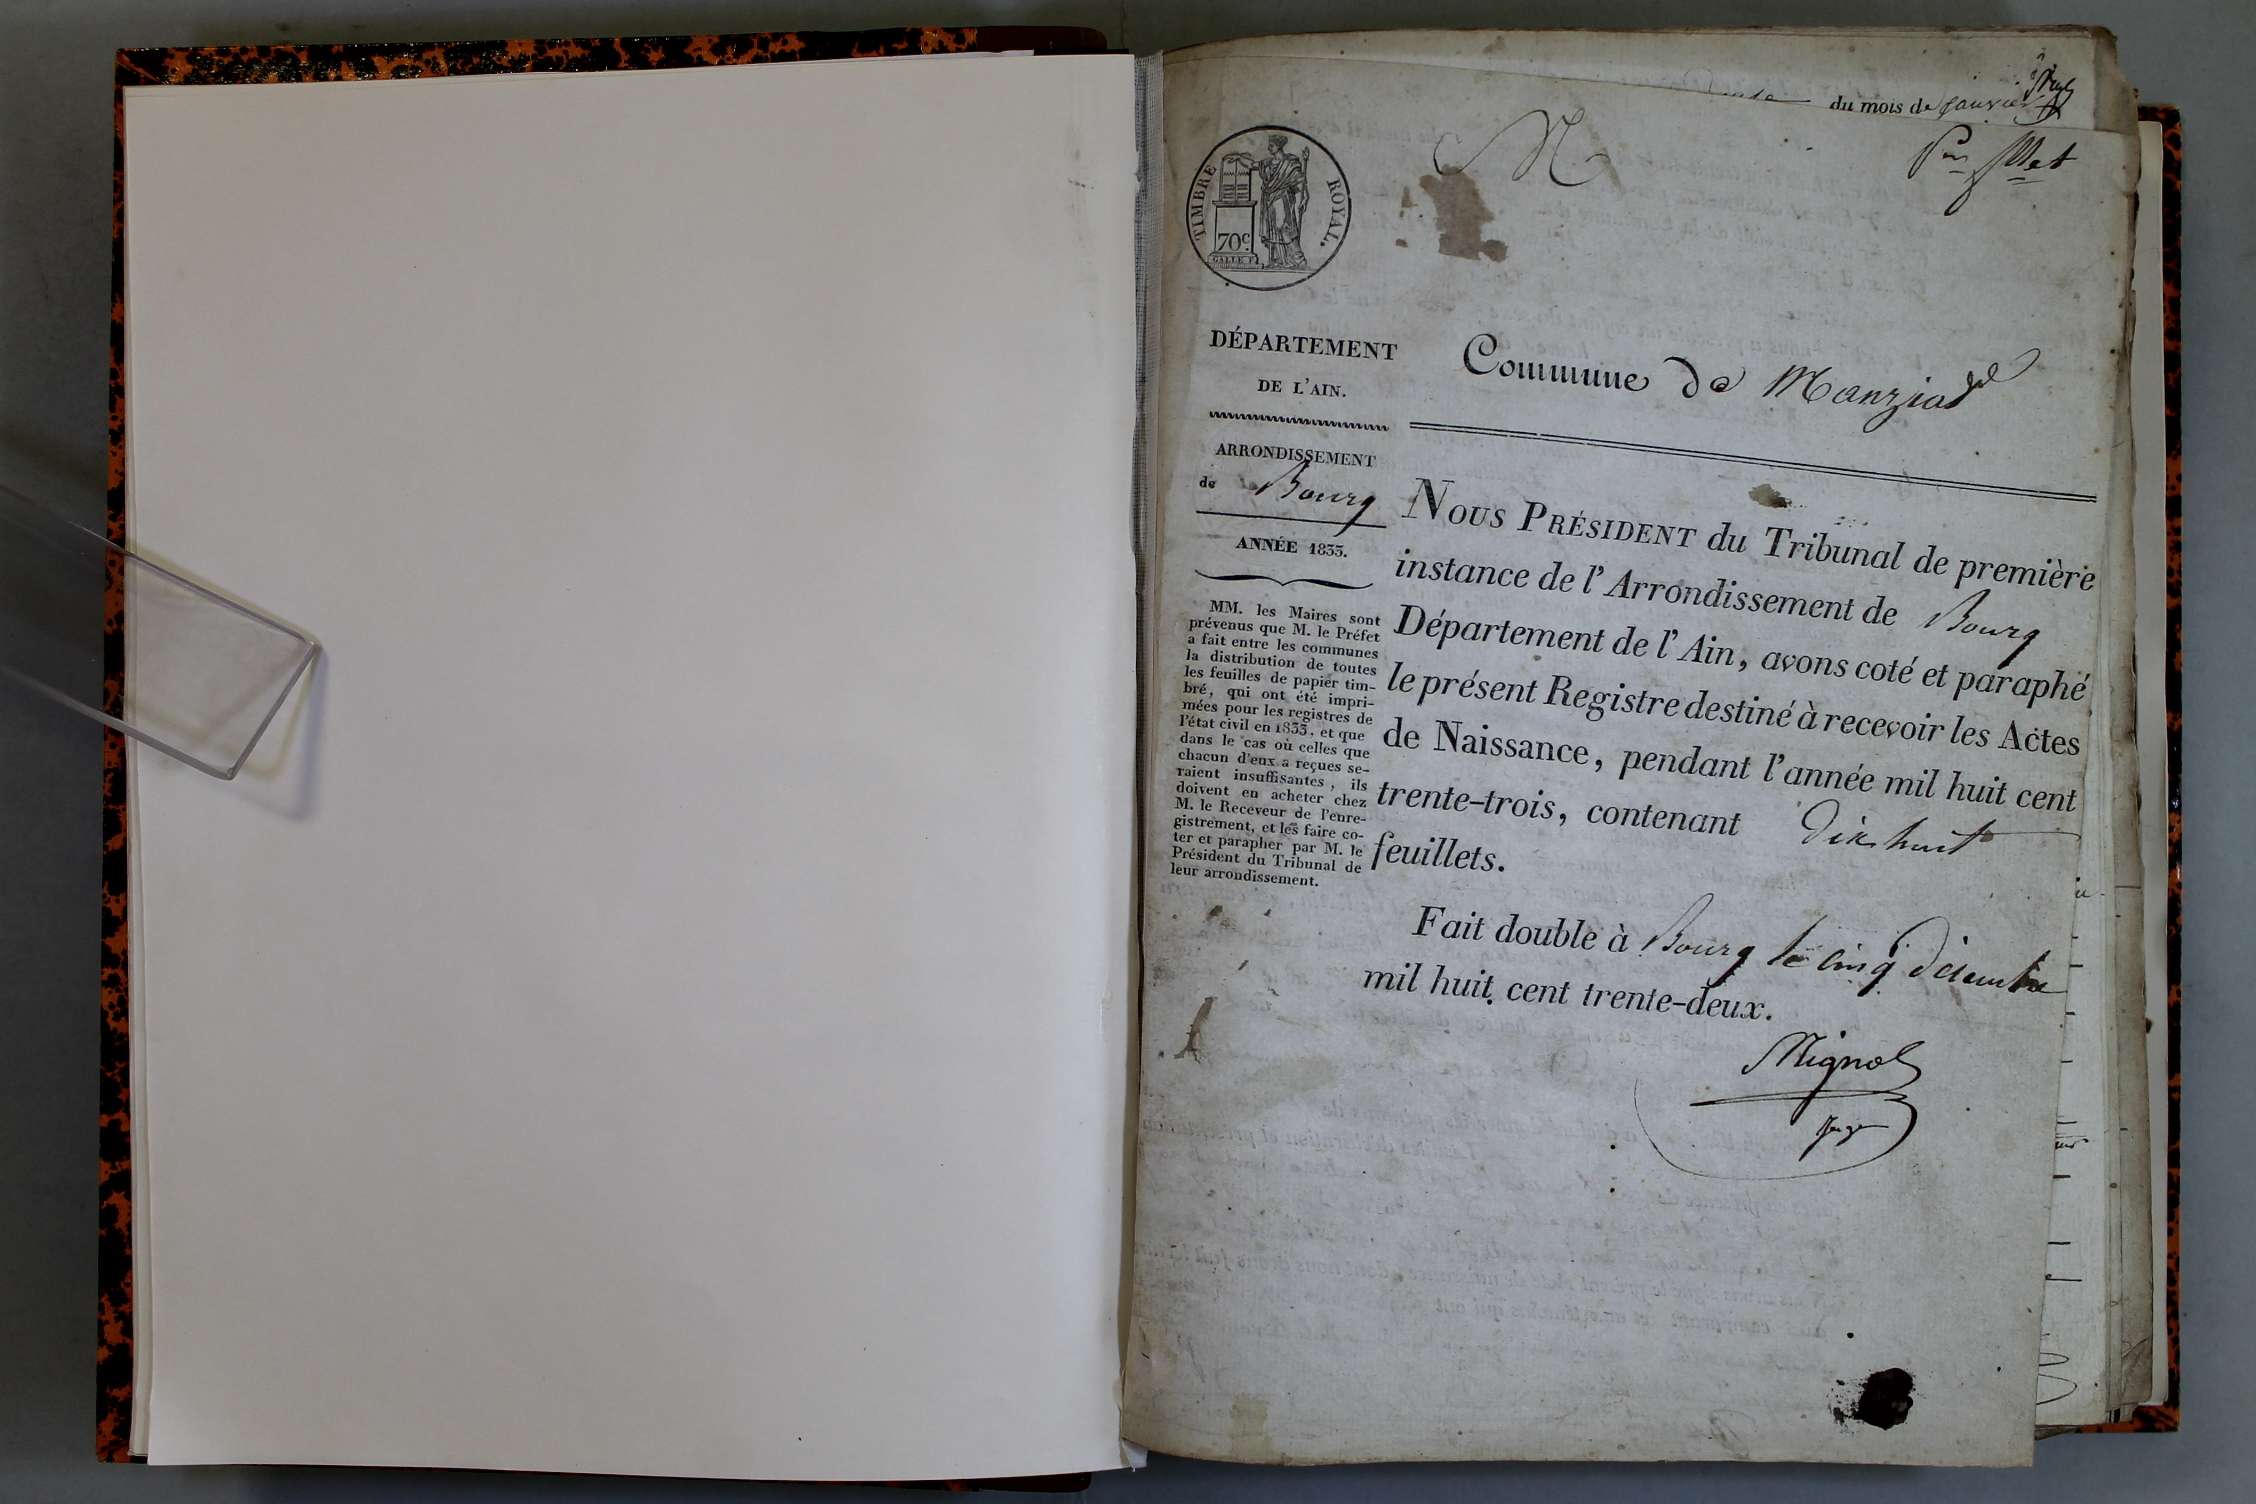 du mois de janvier
N
TIMBRE ROYAL.
70c.
GALLE F.
DÉPARTEMENT
DE L'AIN.
Commune de Manziat
ARRONDISSEMENT
de Bourg
ANNÉE 1833.
MM. les Maires sont
prévenus que M. le Préfet
a fait entre les communes
la distribution de toutes
les feuilles de papier tim-
bré, qui ont été impri-
mées pour les registres de
l'état civil en 1833, et que
dans le cas où celles que
chacun d'eux a reçues se-
raient insuffisantes, ils
doivent en acheter chez
M. le Receveur de l'enre-
gistrement, et les faire co-
ter et parapher par M. le
Président du Tribunal de
leur arrondissement.
NOUS PRÉSIDENT du Tribunal de première
instance de l'Arrondissement de Bourg
Département de l'Ain, avons coté et paraphé
le présent Registre destiné à recevoir les Actes
de Naissance, pendant l'année mil huit cent
trente-trois, contenant dix huit
feuillets.
Fait double à Bourg le cinq décembre
mil huit cent trente-deux.